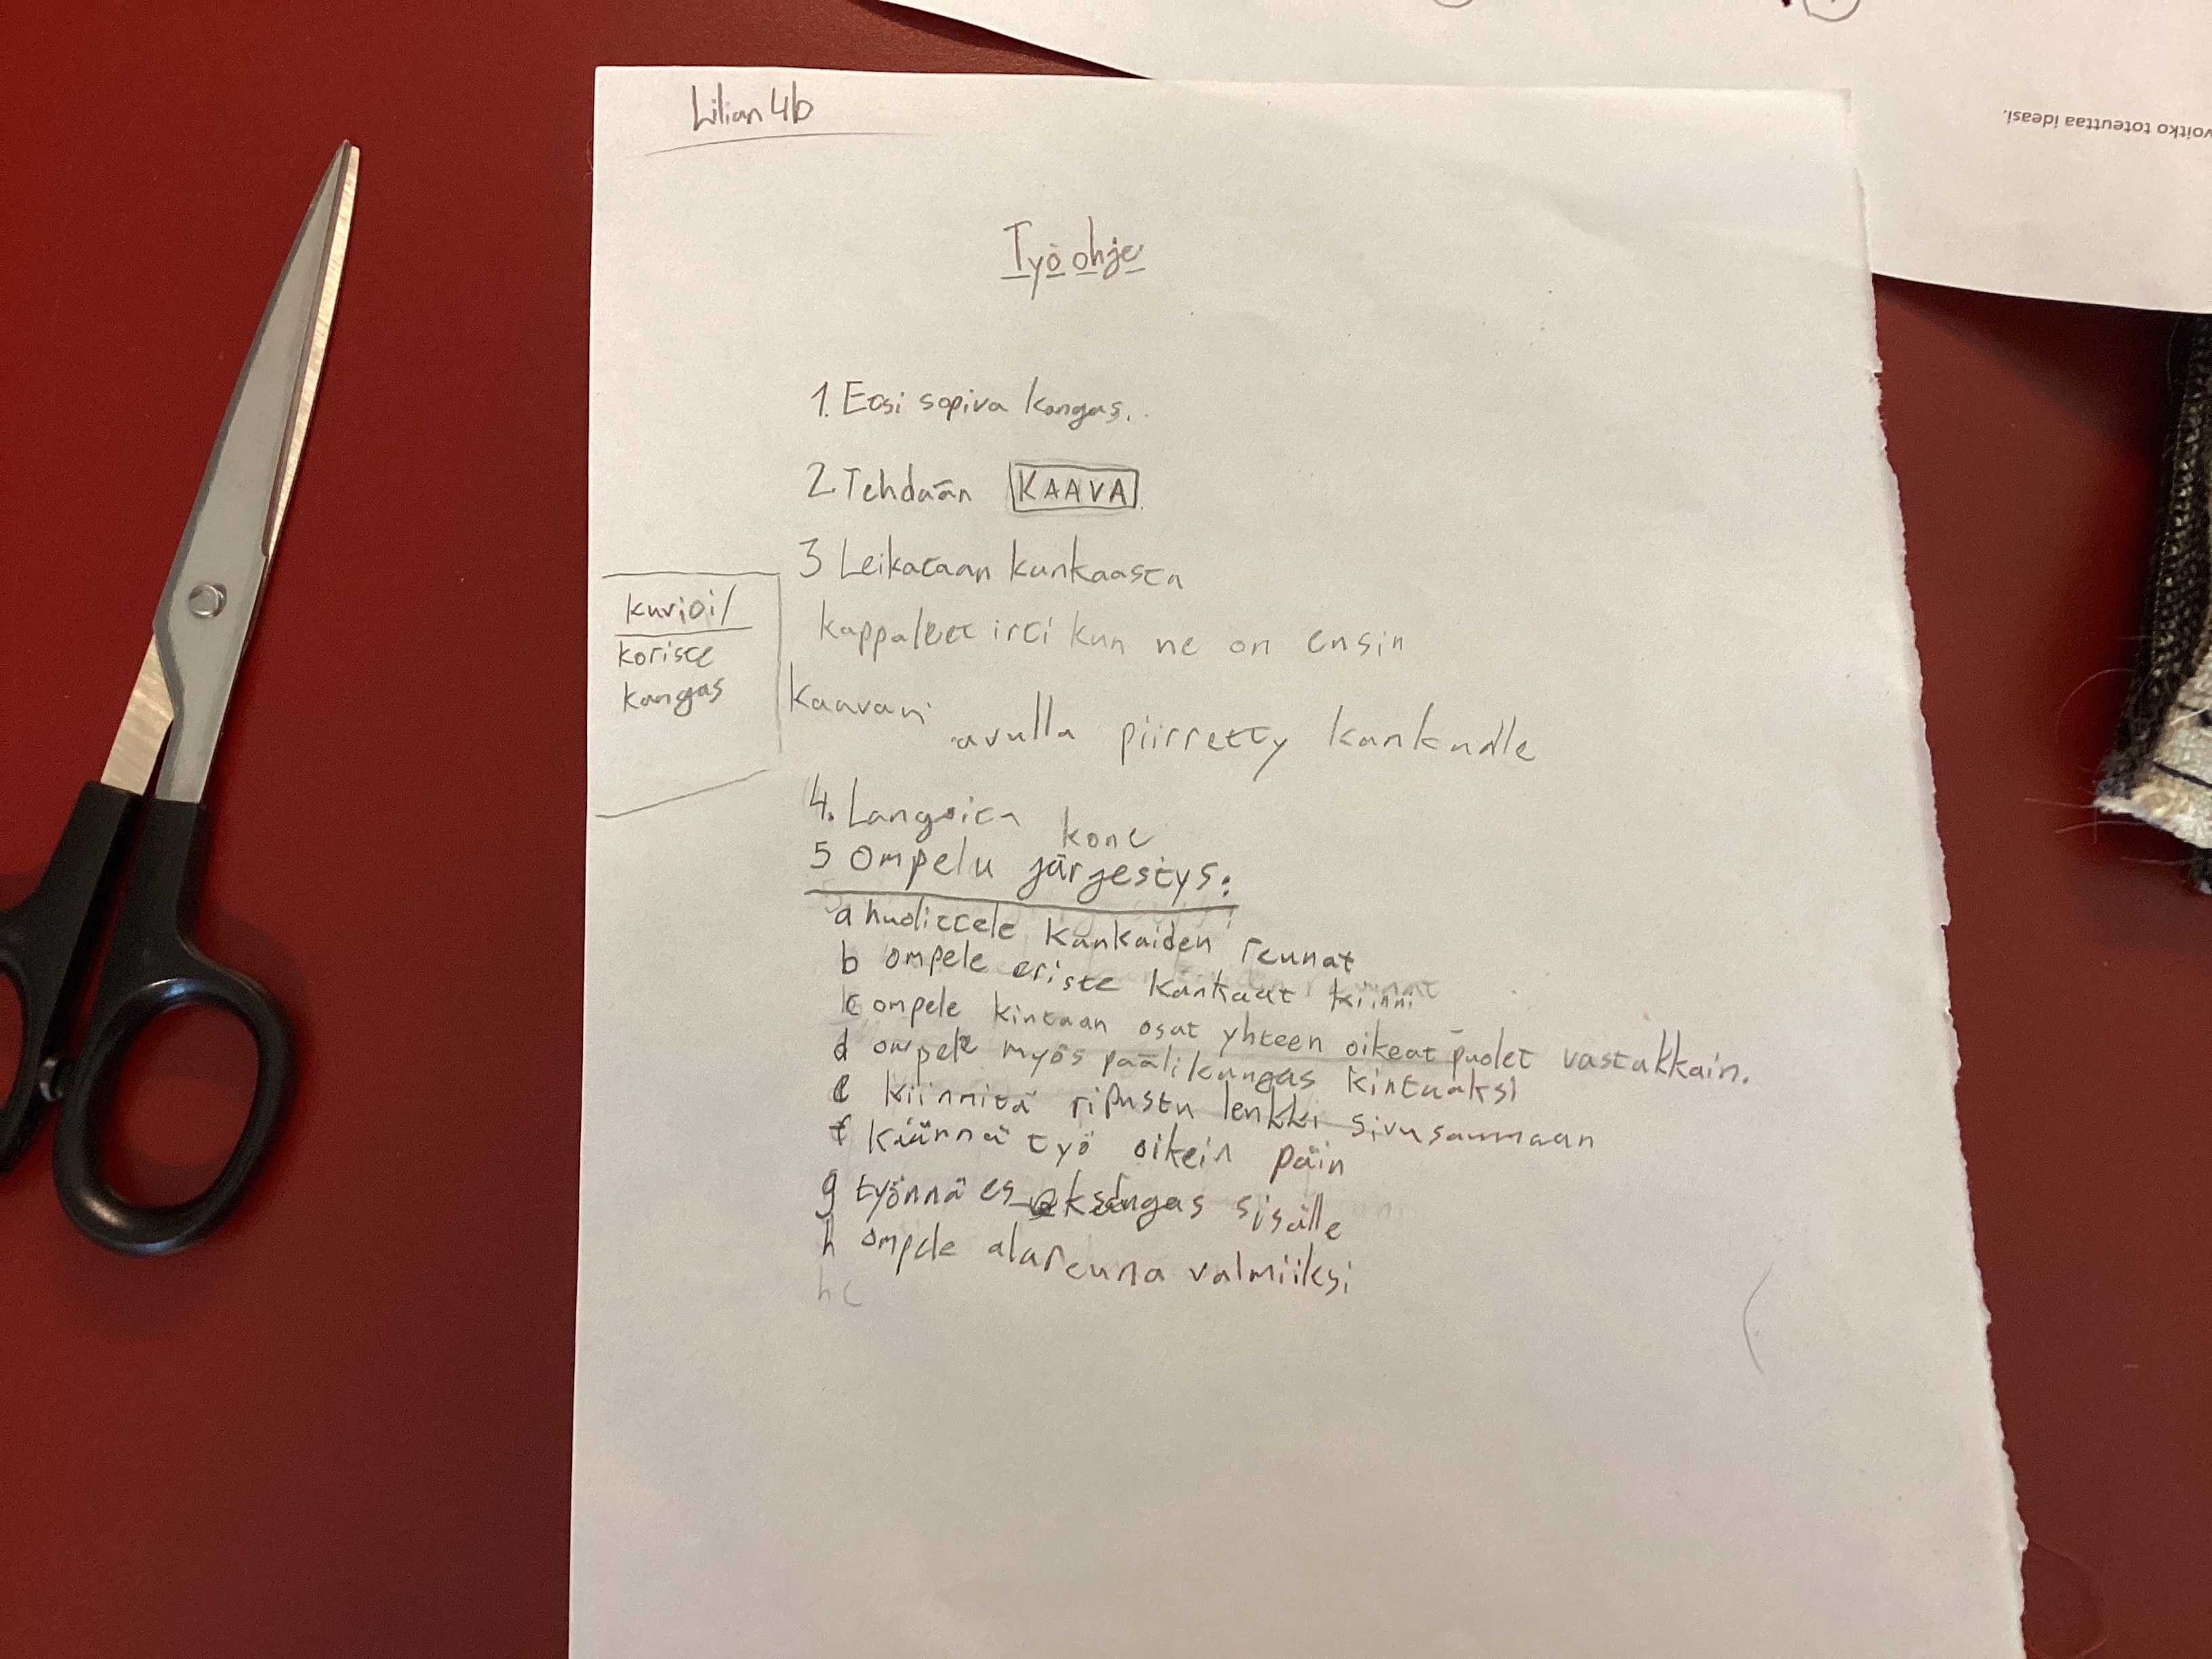 voitko toteuttaa ideasi.
Lilian 4b
Työ ohje
1. Etsi sopiva kangas.
2. Tehdään KAAVA.
3 Leikataan kankaasta
kappaleet irti kun ne on ensin
kaavan avulla piirretty kankaalle
kuvioi/
koriste
kangas
4. Langoita kone
5 Ompelu järjestys:
a huolittele kankaiden reunat
b ompele eriste kankaat kiinni
c ompele kintaan osat yhteen oikeat puolet vastakkain.
d ompele myös päälikangas kintaaksi
e kiinnitä ripustu lenkki sivusaumaan
f käännä työ oikein päin
g työnnä kangas sisälle
h ompele alareuna valmiiksi